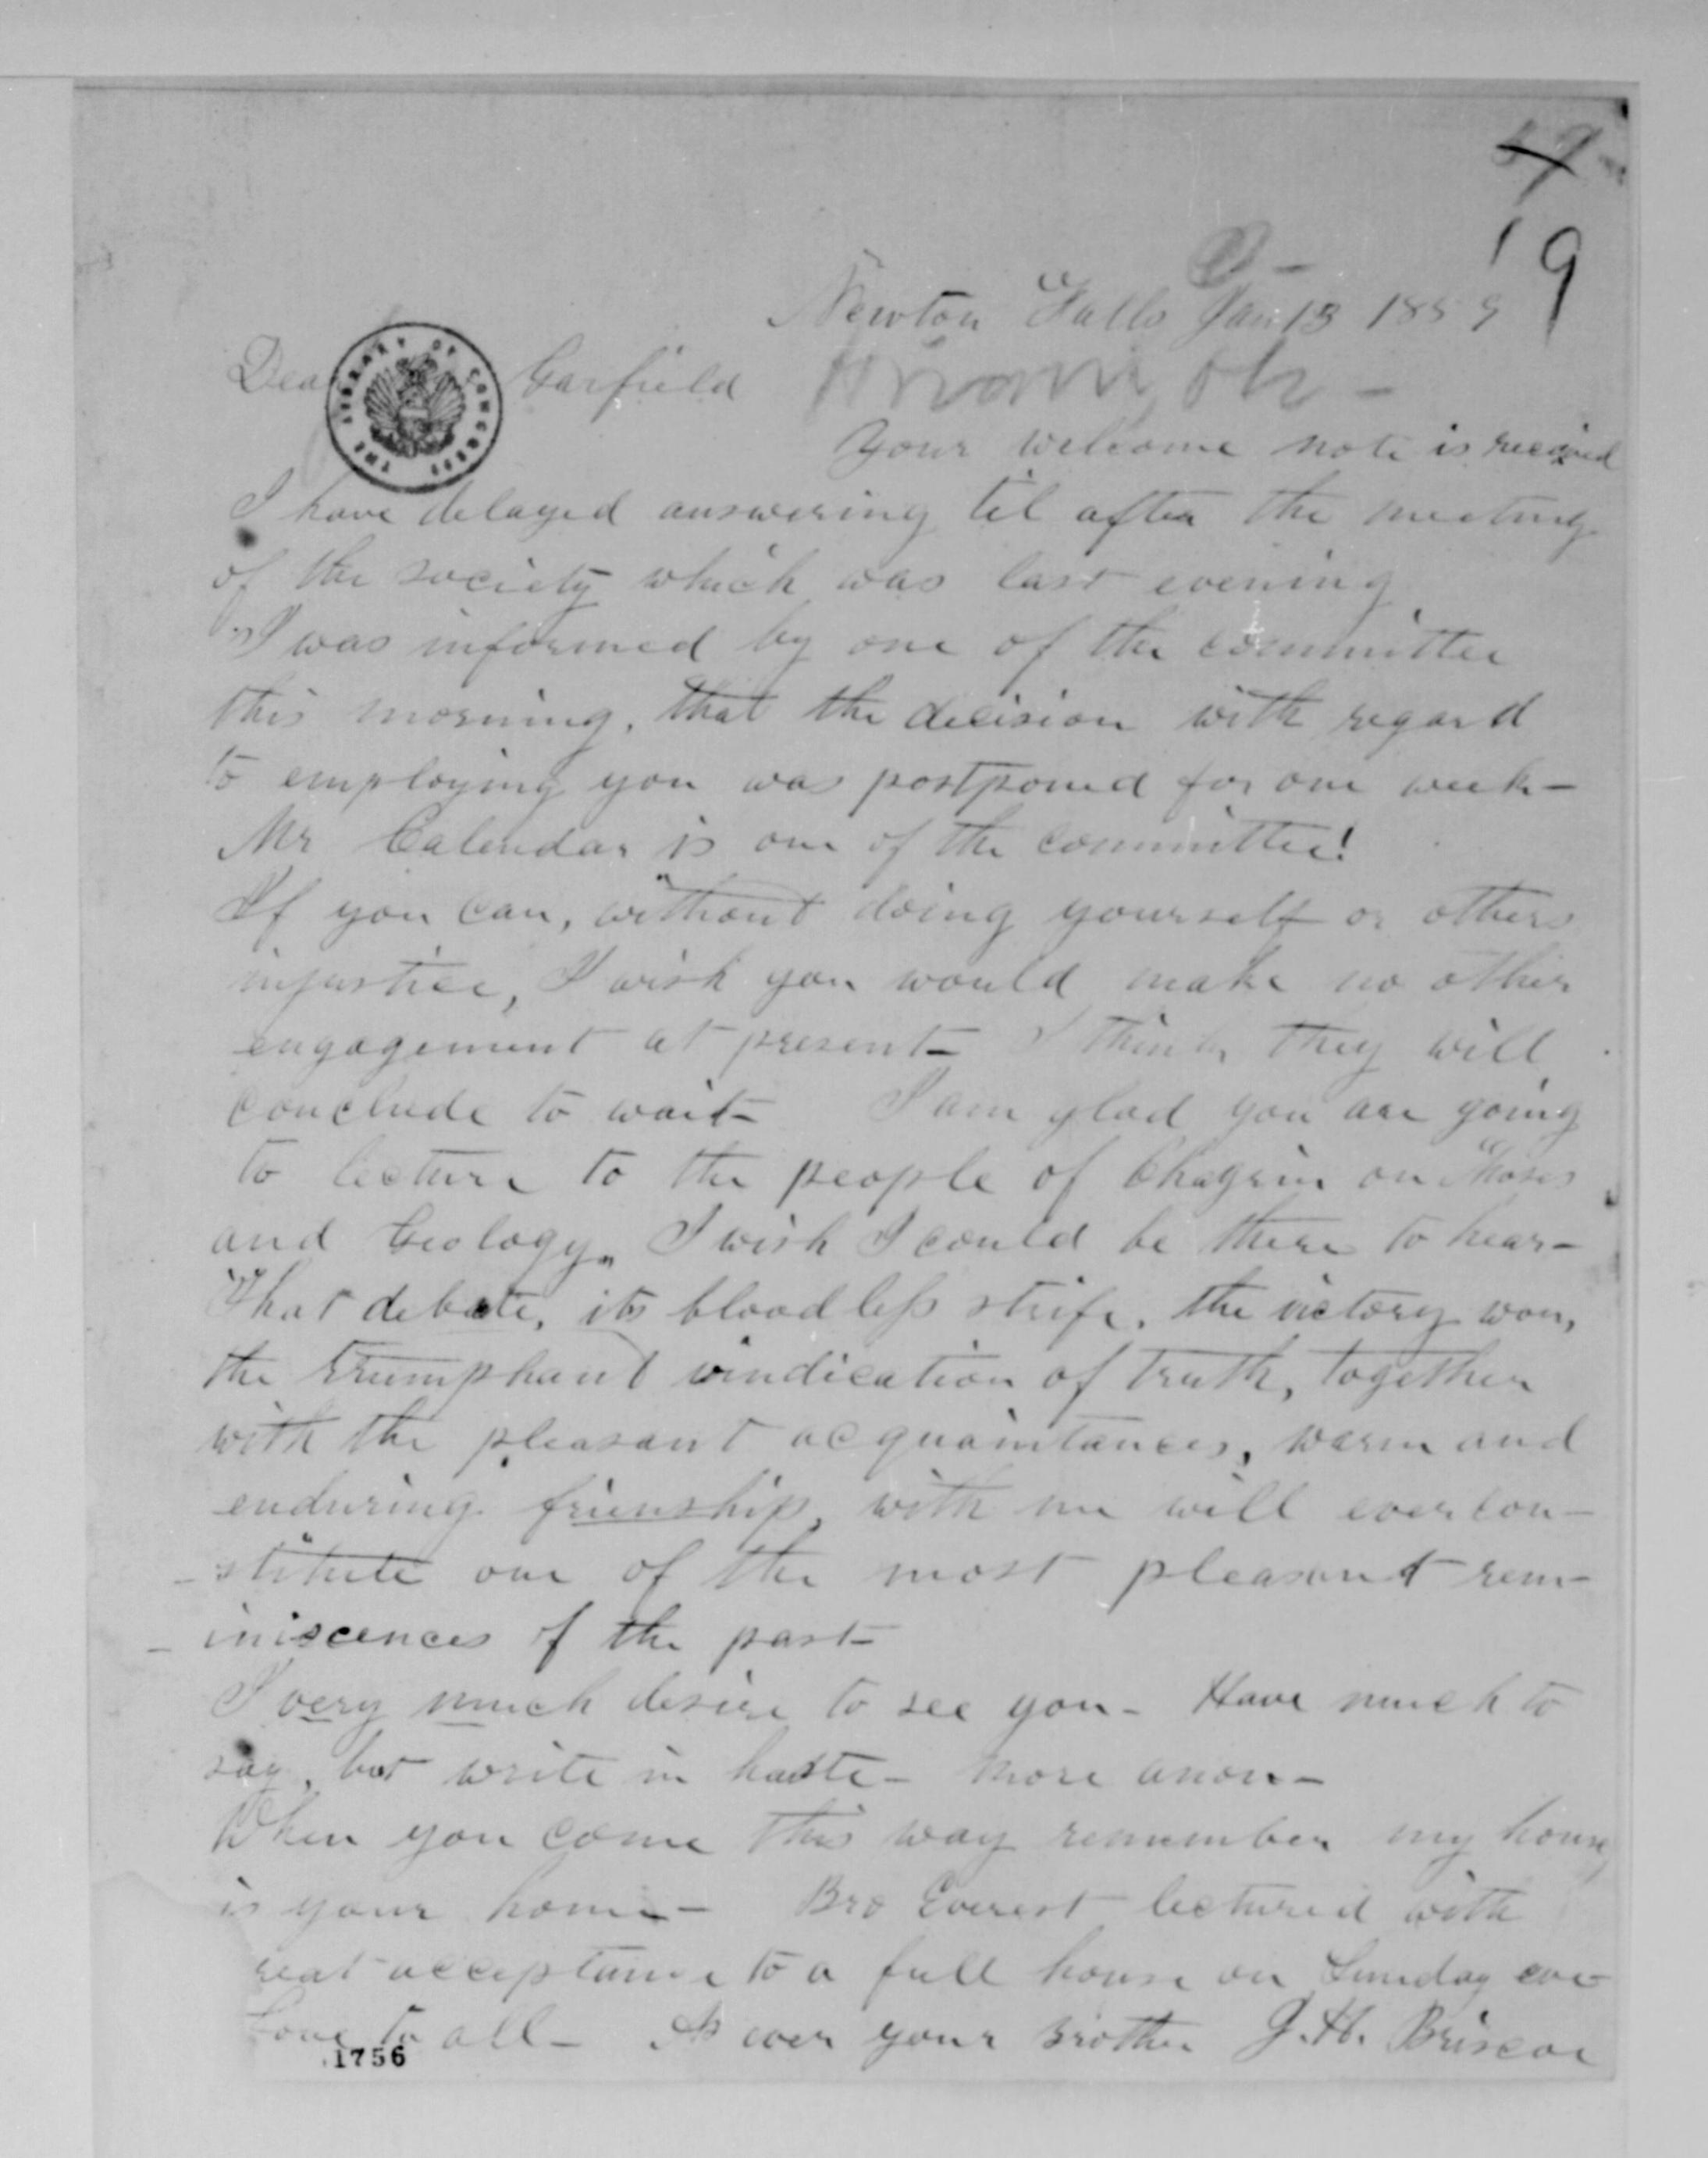 19
Newton Falls Jan 13 1859
Dear Garfield
THE LIBRARY OF CONGRESS
Hiram
Your welcome note is received
I have delayed answering til after the meeting
of the society which was last evening
I was informed by one of the committee
this morning, that the decision with regard
to employing you was postponed for one week-
Mr Calendar is one of the committee!
If you can, without doing yourself or others
injustice, I wish you would make no other
engagement at present- I think they will
conclude to wait- I am glad you are going
to lecture to the people of Chagrin on "Moses
and Geology" I wish I could be there to hear-
That debate, its bloodless strife, the victory won,
the trumphant vindication of truth, together
with the pleasant acquaintances, warm and
enduring frienship, with me will ever con-
-stitute one of the most pleasant rem-
-iniscences of the past-
I very much desire to see you- Have much to
say, but write in haste- more anon-
When you come this way remember my house
is your home- Bro Everest lectured with
reat acceptance to a full house on Sunday eve
Love to all- As ever your Brother J. H. Briscoe
1756